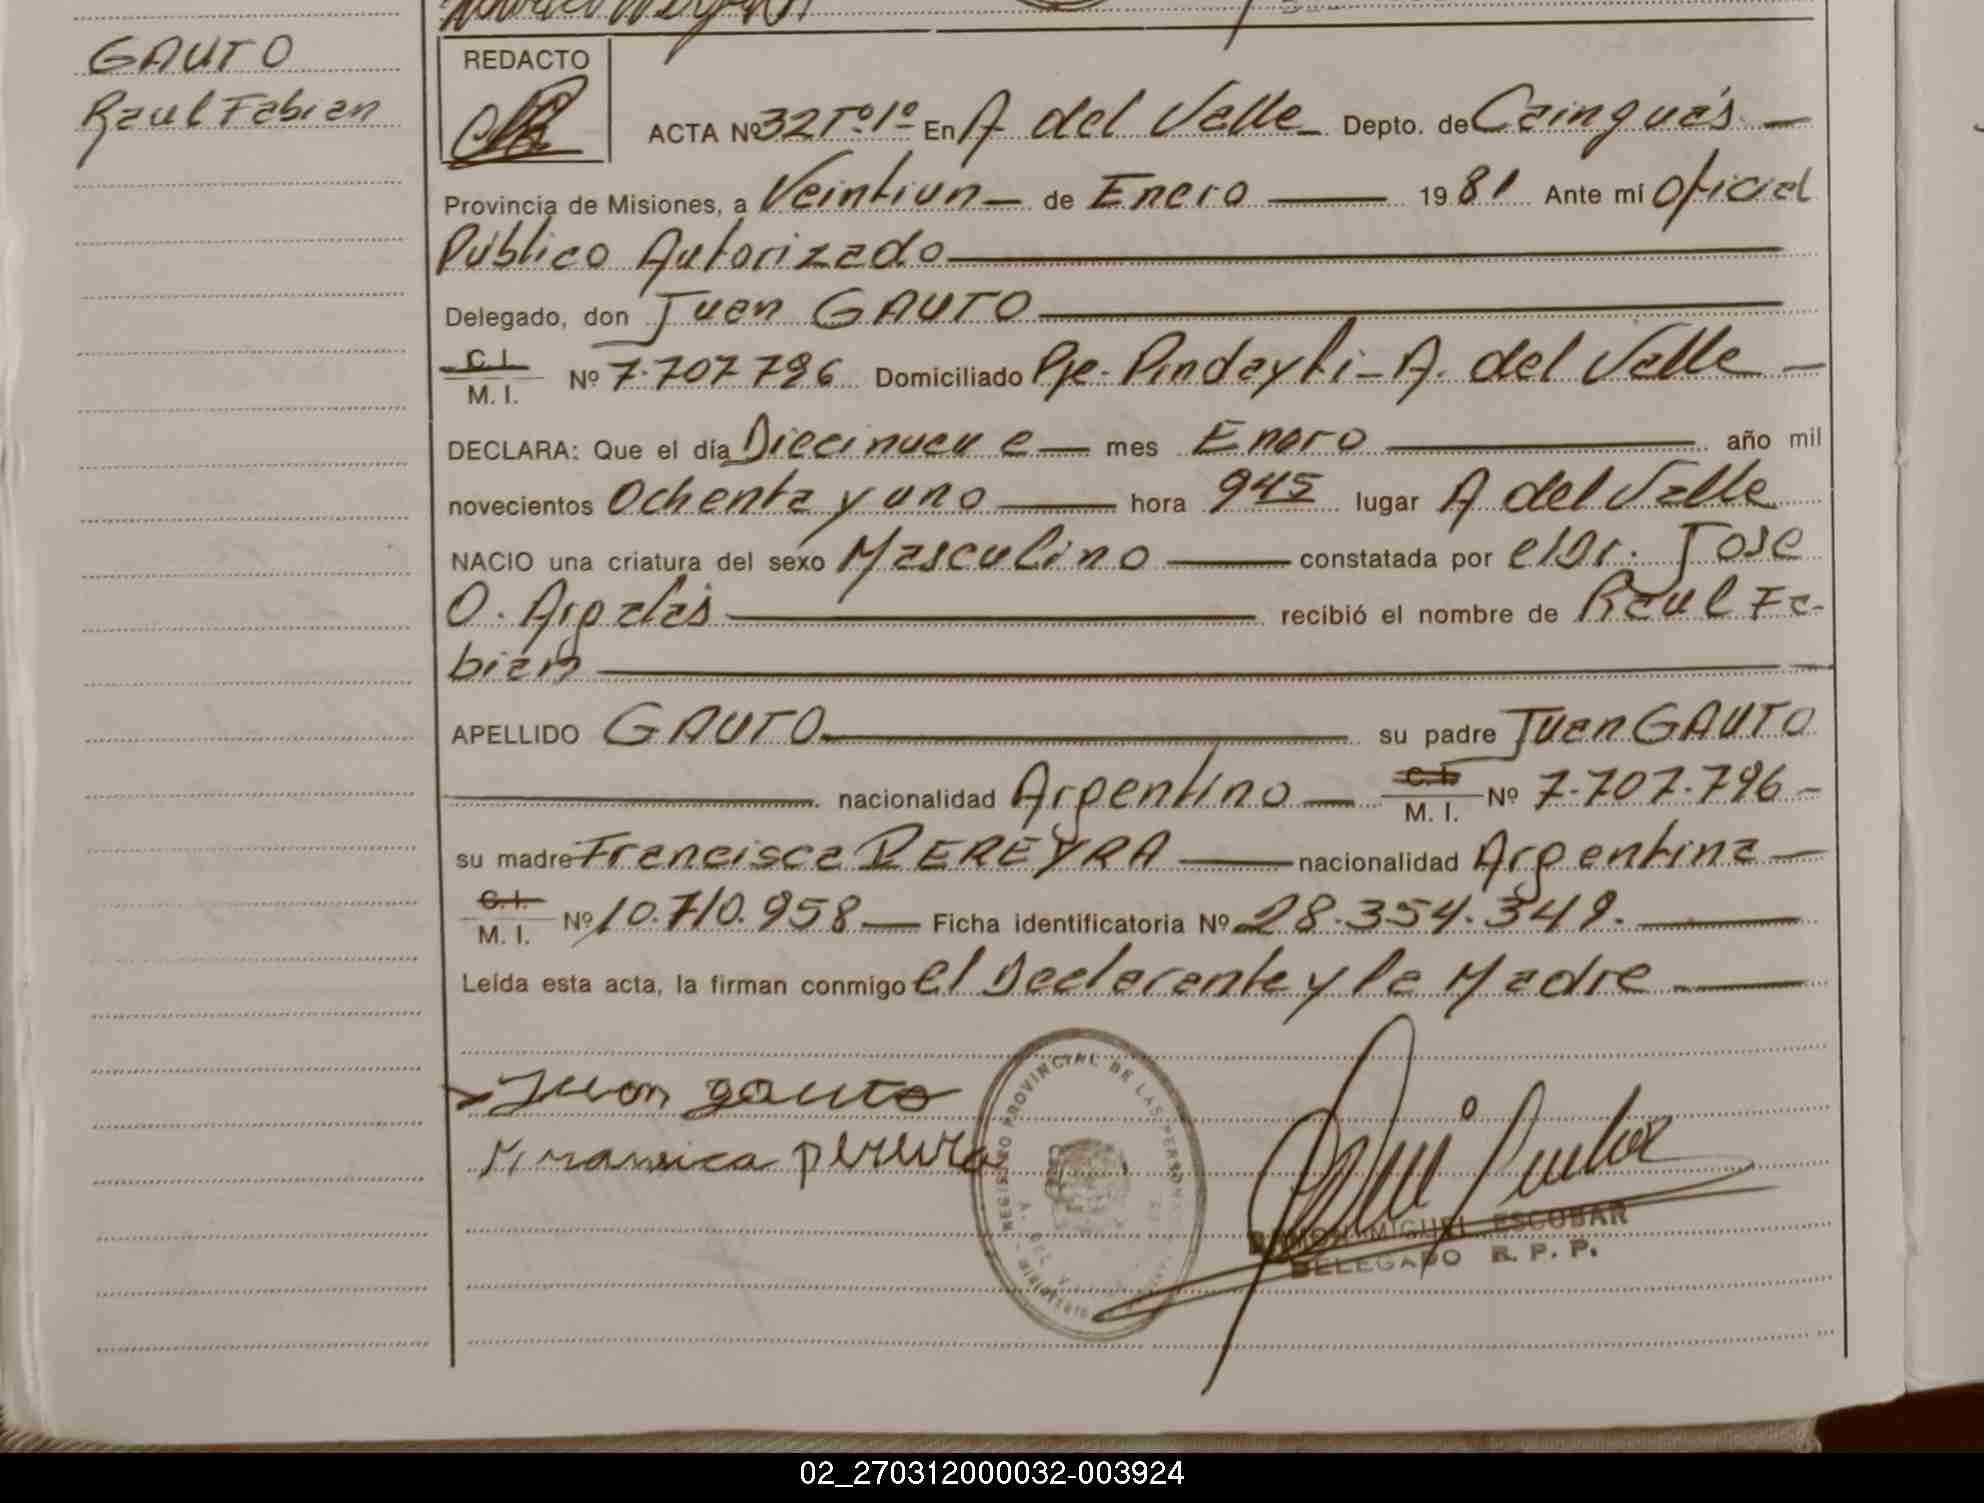 GAUTO
Raul Fabian
REDACTO
ACTA Nº 32 Tº1º En A del Valle Depto. de Cainguás
Provincia de Misiones, a Veintiun de Enero 1981 Ante mí Oficial
Público Autorizado
Delegado, don Juan GAUTO
C.I. M. I. Nº 7.707.796 Domiciliado Pje. Pindayti - A. del Valle
DECLARA: Que el día Diecinueve mes Enero año mil
novecientos Ochenta y uno hora 945 lugar A del Valle
NACIO una criatura del sexo Masculino constatada por el Dr. Jose
O. Argalas recibió el nombre de Raul Fa-
bian
APELLIDO GAUTO su padre Juan GAUTO
nacionalidad Argentino C.I. M. I. Nº 7.707.796
su madre Francisca PEREYRA nacionalidad Argentina
C.I. M. I. Nº 10.710.958 Ficha identificatoria Nº 28.354.349.
Leída esta acta, la firman conmigo el Declarante y la Madre
Juan gauto
REGISTRO PROVINCIAL DE LAS PERSONAS
A. DEL VALLE
RAMON MIGUEL ESCOBAR
DELEGADO R. P. P.
02_270312000032-003924